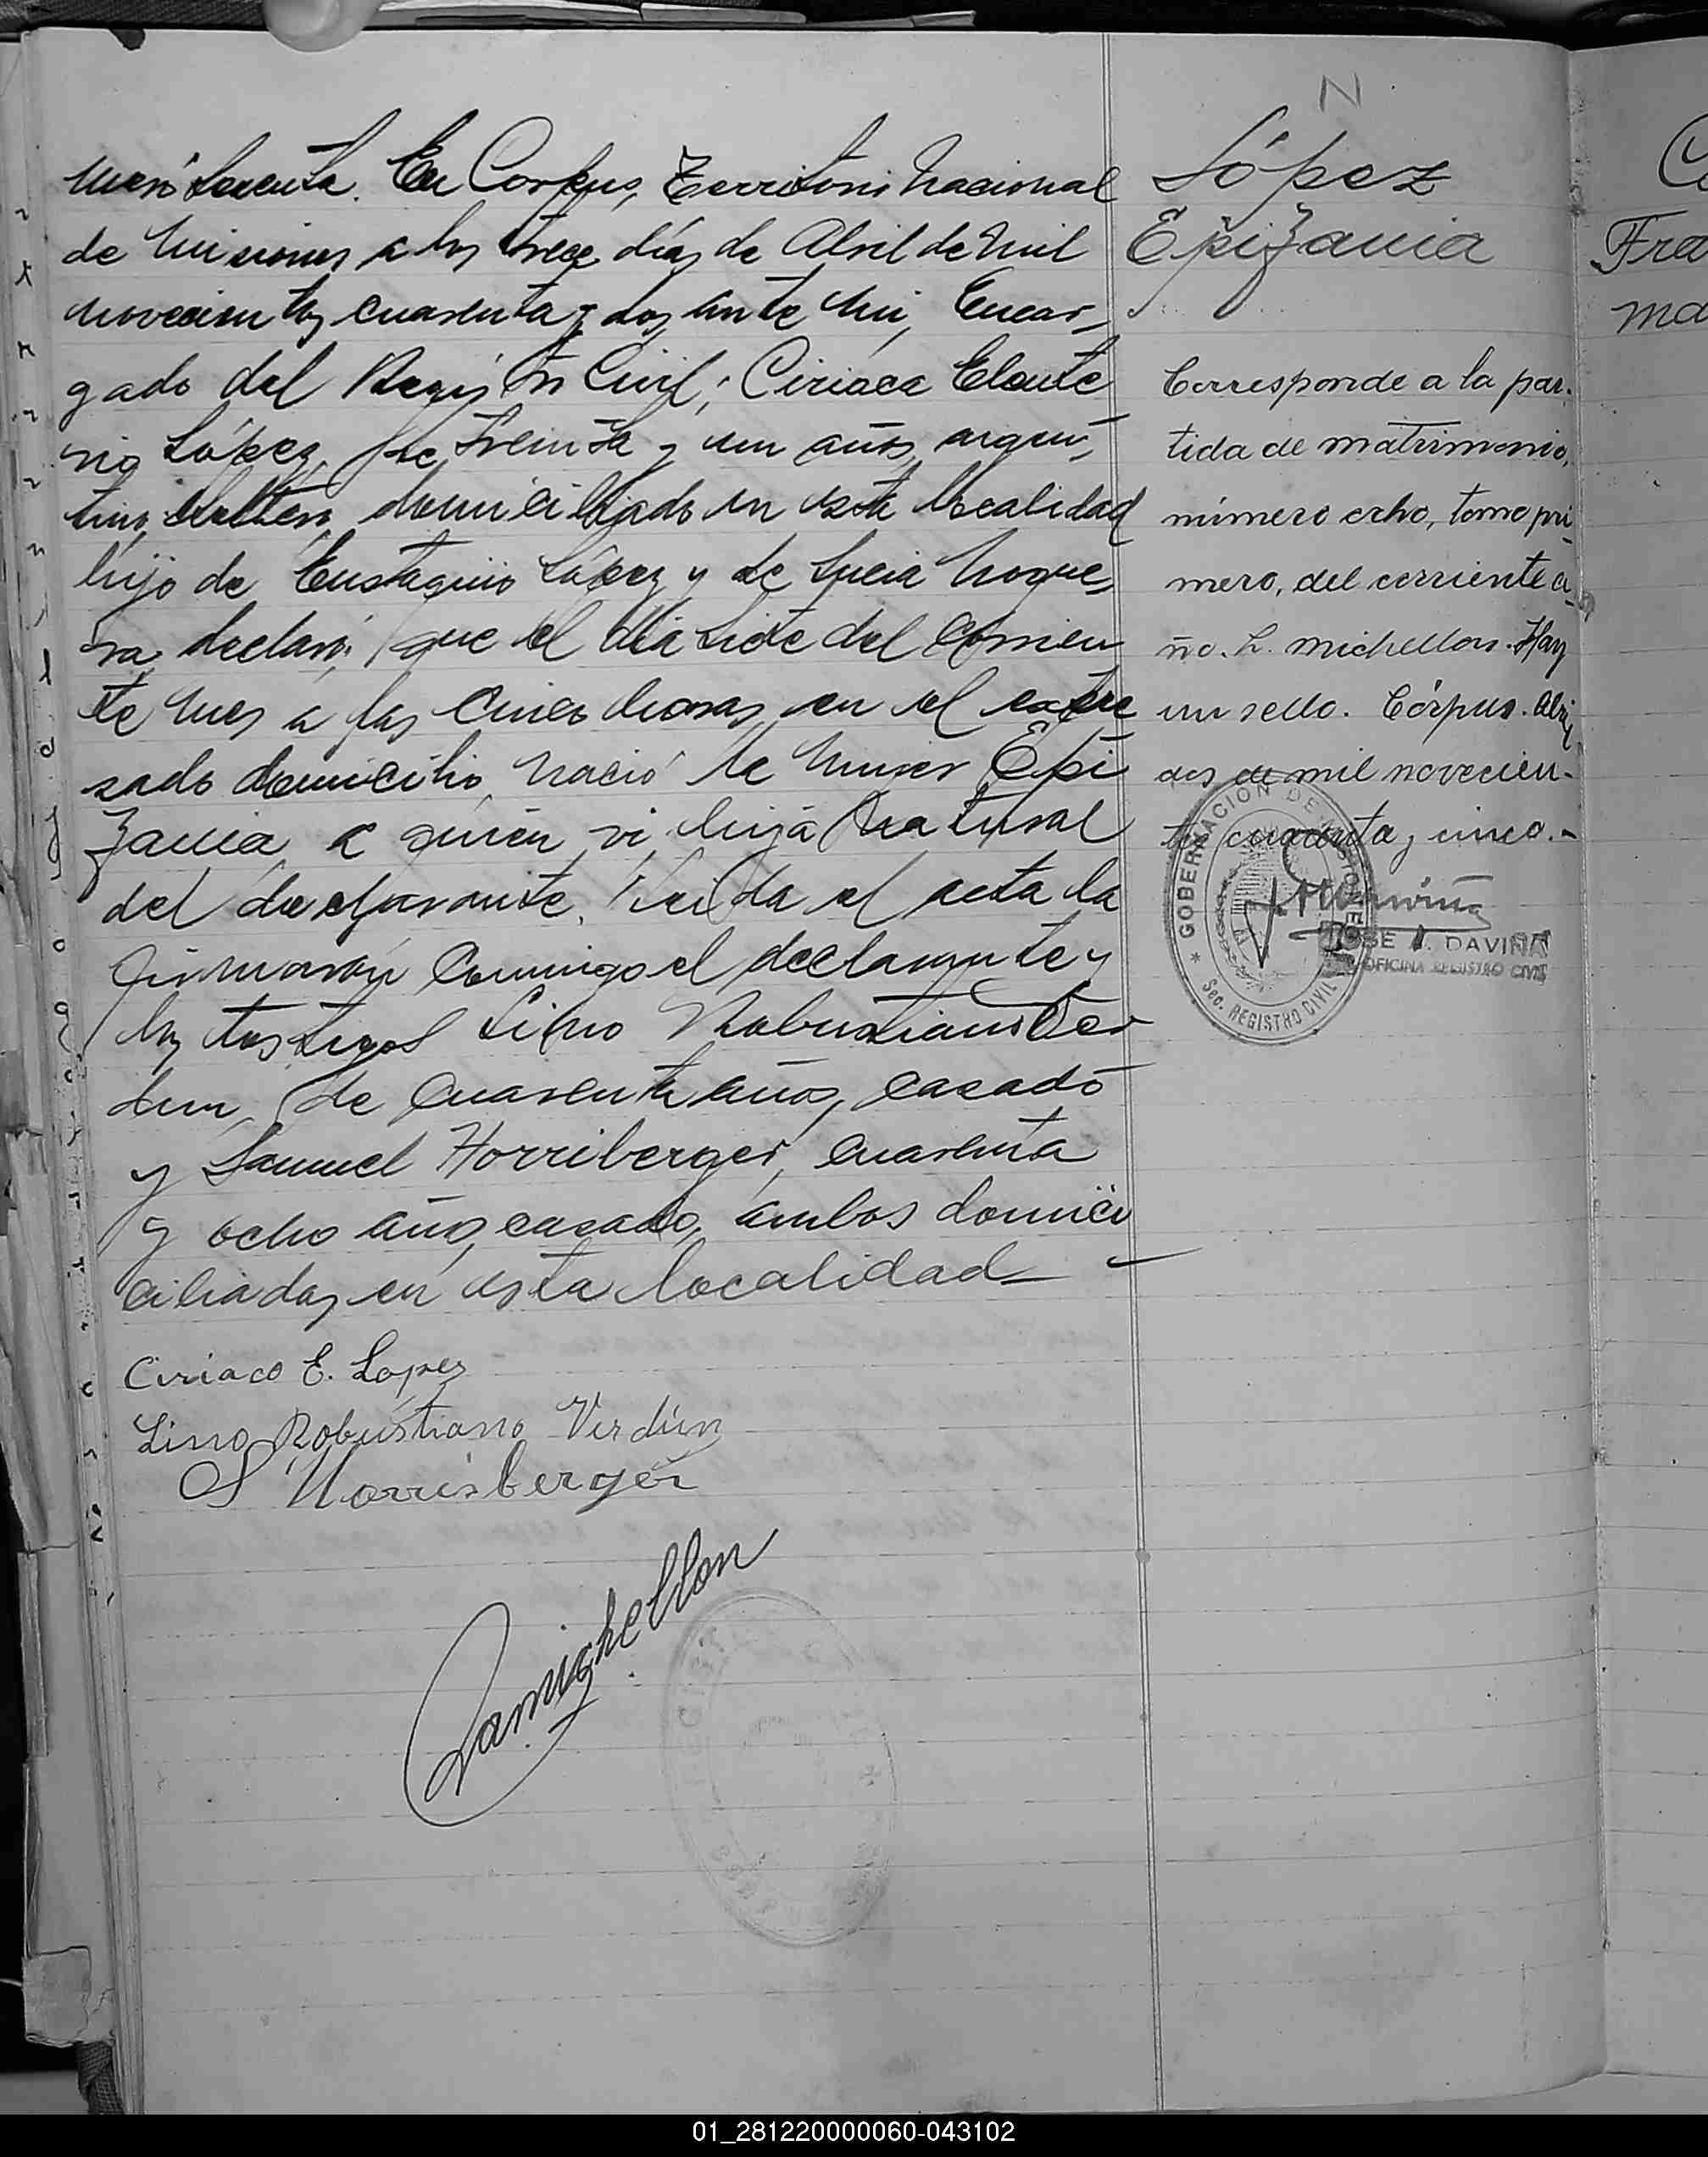 N
López
Epifania
Número sesenta. En Corpus, Territorio Nacional
de Misiones a los trece días de Abril de mil
novecientos cuarenta y dos, ante mi, Encar-
gado del Registro Civil; Ciriaca Eleute
rio López, de treinta y un años, argen-
tino, soltero, domiciliado en esta localidad
hijo de Eustaquio López y de Lucia Nogue-
ra, declaró; que el día siete del corrien
te mes a las cinco horas, en el expre
sado domicilio nació la mujer Epi
fania a quien vi, hija natural
del declarante. Leida el acta la
firmaron conmigo el declarante y
los testigos Lino Robustiano Ver
dun, de cuarenta años, casado
y Samuel Horriberger, cuarenta
y ocho años, casado, ambos domici
ciliados en esta localidad
Ciriaco E. Lopez
Lino Robustiano Verdún
S Horrisberger
Michellon
Corresponde a la par-
tida de matrimonio,
número ocho, tomo pri
mero, del corriente a-
ño. L. Michellon. Hay
un sello. Córpus. Abril
dos de mil novecien-
tos cuarenta y cinco.-
GOBERNACION DE MISIONES
Sec. REGISTRO CIVIL
JOSE A. DAVIÑA
OFICINA REGISTRO CIVIL
C
Fra
ma
01_281220000060-043102